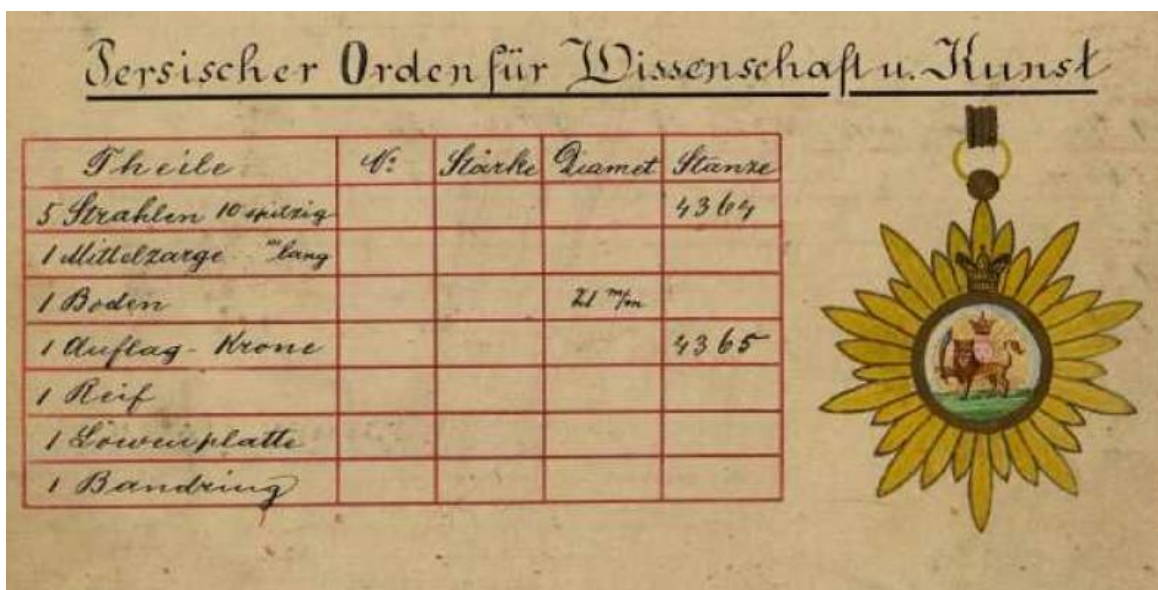 Persischer Orden für Wissenschaft u. Kunst
Theile No: Stärke Diamet Stanze
5 Strahlen 10 spitzig 4364
1 Mittelzarge m lang
1 Boden 21 m/m
1 Auflag- Krone 4365
1 Reif
1 Löwenplatte
1 Bandring